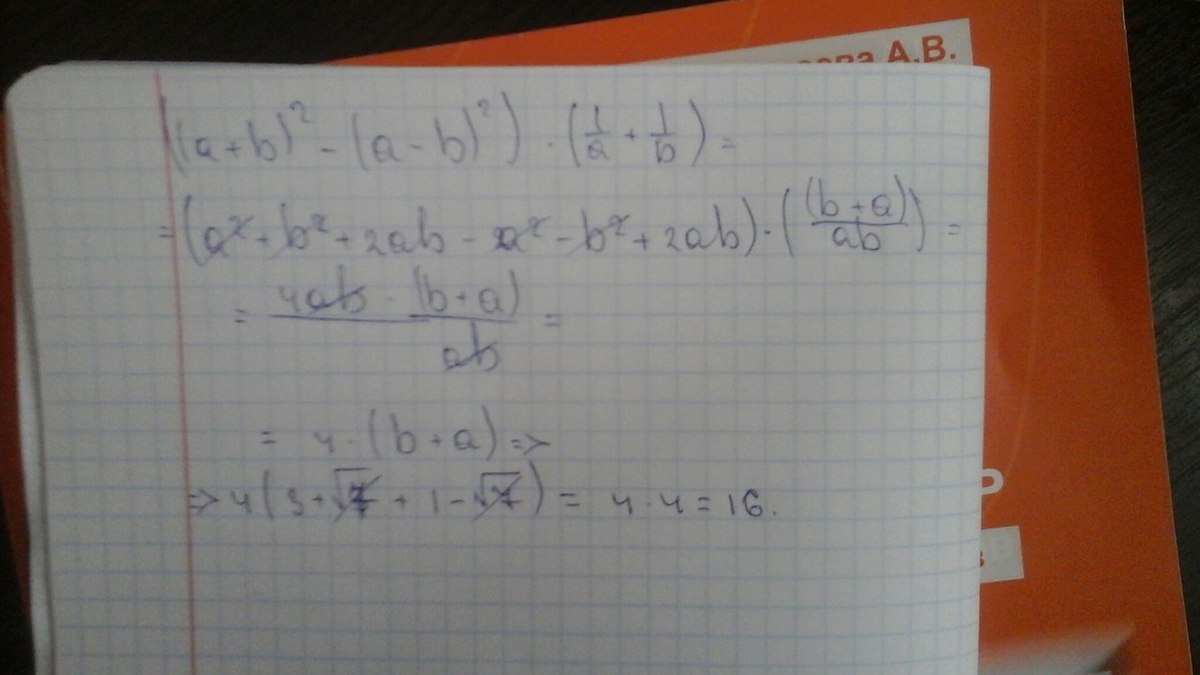 А.В.
((a+b)² - (a-b)²) · (1/a + 1/b) =
= (a² + b² + 2ab - a² - b² + 2ab) · ((b+a)/ab) =
= 4ab · (b+a)/ab =
= 4 · (b+a) =>
=> 4(3+√7 + 1-√7) = 4·4 = 16.